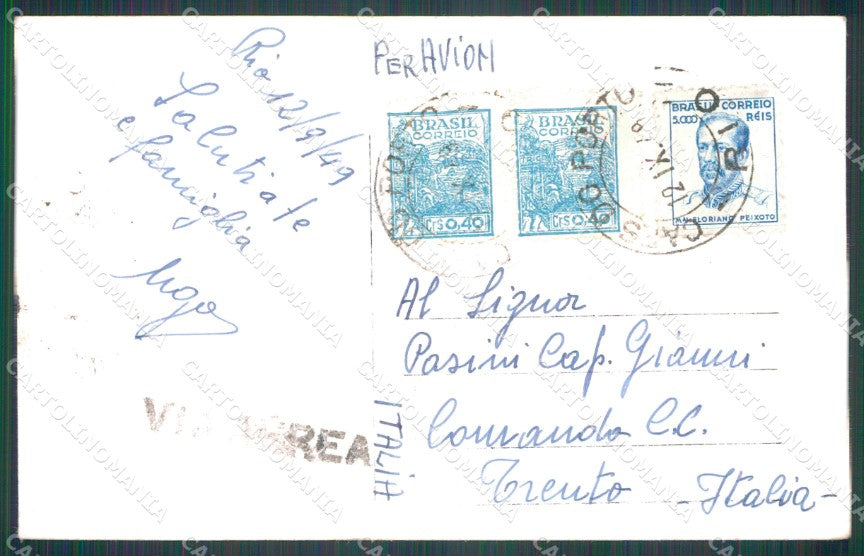 Rio 12/9/49
Saluti a te
e famiglia
Ugo
VIA AEREA
PER AVION
BRASIL
CORREIO
CTS 0,40
BRASIL
CORREIO
BRASIL CORREIO
5.000 RÉIS
MAL FLORIANO PEIXOTO
12 IX
RIO
Al Signor
Pasini Cap. Gianni
Comando C.C.
Trento - Italia -
ITALIA
CARTOLINOMANIA